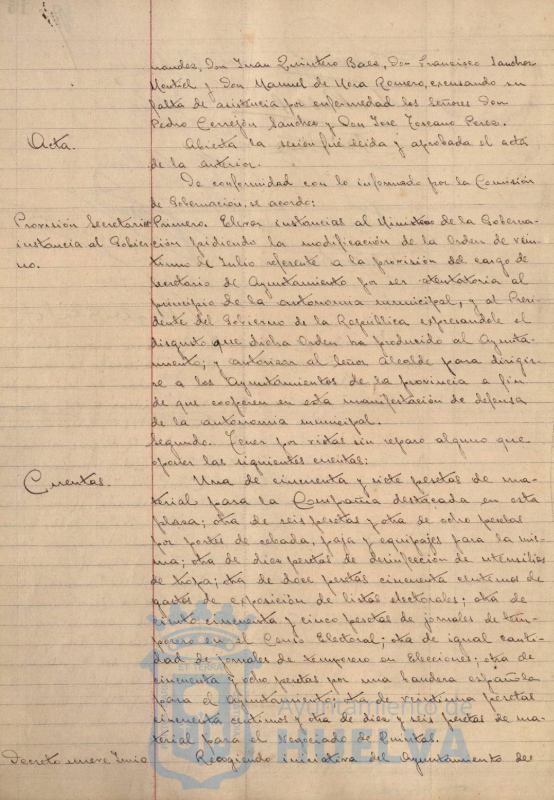 nandez, Don Juan Quintero Baez, Don Francisco Sanchez
Montiel y Don Manuel de Mora Romero, excusando su
falta de asistencia por enfermedad los Señores Don
Pedro Cerrejón Sanchez y Don José Toscano Perez.
Acta.
Abierta la sesion fué leida y aprobada el acta
de la anterior.
De conformidad con lo informado por la Comisión
de Gobernación, se acordó:
Provisión Secretario
instancia al Gobier
no.
Primero. Elevar instancias al Ministro de la Goberna-
ción pidiendo la modificación de la Orden de vein-
tiuno de Julio referente a la provisión del cargo de
Secretario de Ayuntamiento por ser atentatoria al
principio de la autonomia municipal, y al Presi-
dente del Gobierno de la Republica expresandole el
disgusto que dicha Orden ha producido al Ayunta-
miento; y autorizar al Señor Alcalde para dirigir-
se a los Ayuntamientos de la provincia a fin
de que cooperen en esta manifestación de defensa
de la autonomia municipal.
Segundo. Tener por vistas sin reparo alguno que
oponer las siguientes cuentas:
Cuentas.
Una de cincuenta y siete pesetas de ma-
terial para la Compañia destacada en esta
plaza; otra de seis pesetas y otra de ocho pesetas
por portes de cebada, paja y equipajes para la mis-
ma; otra de diez pesetas de desinfección de utensilios
de tropa; otra de doce pesetas cincuenta centimos de
gastos de exposición de listas electorales; otra de
ciento cincuenta y cinco pesetas de jornales de tem-
porero en el Censo Electoral; otra de igual canti-
dad de jornales de temporero en Elecciones; otra de
cincuenta y ocho pesetas por una bandera española
para el Ayuntamiento; otra de veintiuna pesetas
cincuenta centimos y otra de diez y seis pesetas de ma-
terial para el Negociado de Quintas.
Decreto nueve Junio
Recogiendo iniciativa del Ayuntamiento de
Ayuntamiento de
HUELVA